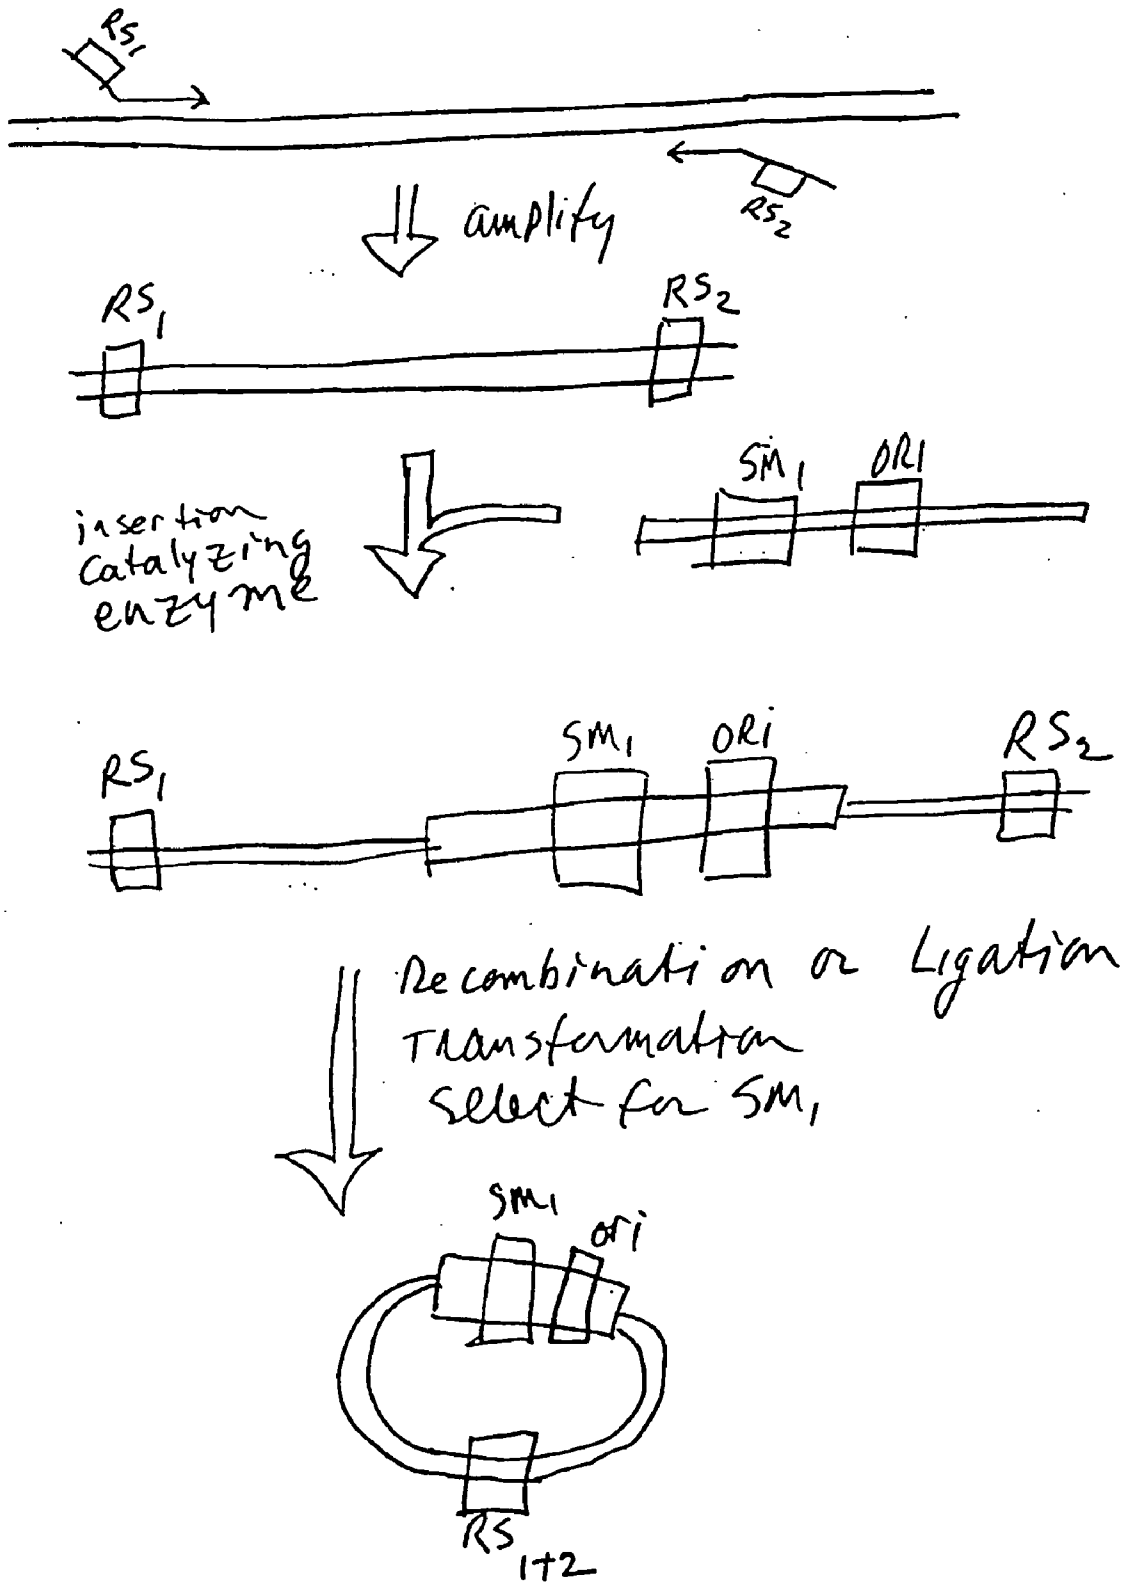 RS1
RS2
amplify
RS1
RS2
SM1
ORI
insertion
catalyzing
enzyme
RS1
SM1
ORi
RS2
Recombination or Ligation
Transformation
select for SM1
SM1
ori
RS1+2